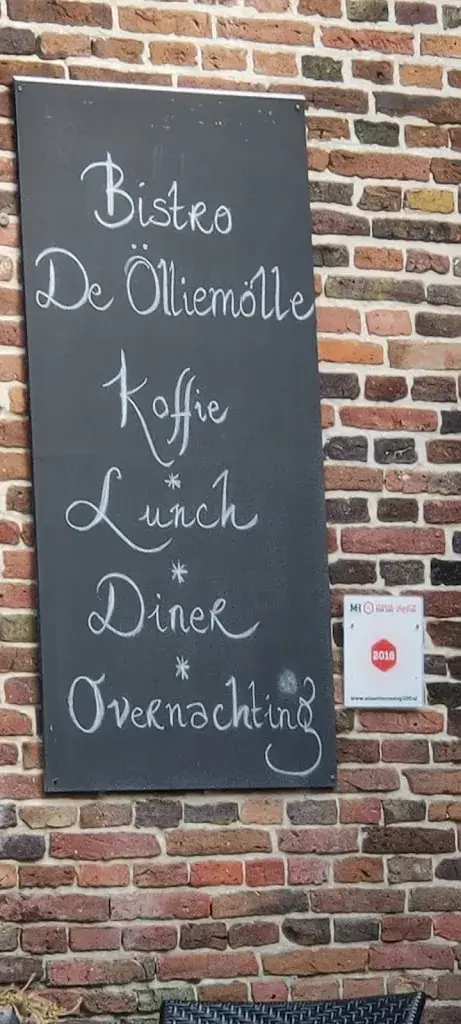 Bistro
De Ölliemölle
Koffie
*
Lunch
*
Diner
*
Overnachting
2016